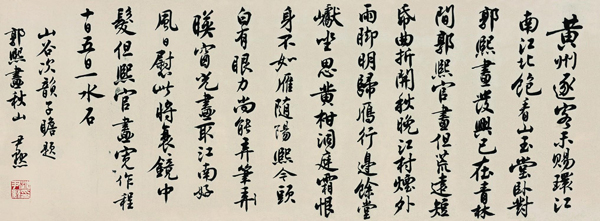 黃州逐客未賜環江
南江北飽看山玉堂臥對
郭熙畫發興已在青林
間郭熙官畫但荒遠短
紙曲折開秋晚江村煙外
雨腳明歸雁行邊餘疊
巘坐思黃柑洞庭霜恨
身不如雁隨陽熙今頭
白有眼力尚能弄筆弄
映窗光畫取江南好
風日慰此將老鏡中
髮但熙官畫寬作程
十日五日一水石
山谷次韻子瞻題
郭熙畫秋山 尹